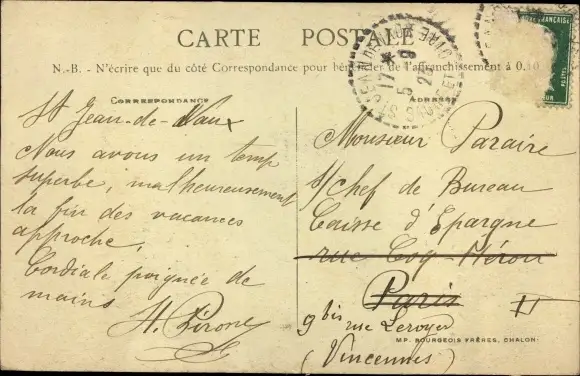 CARTE POSTALE
N.-B. - N'écrire que du côté Correspondance pour bénéficier de l'affranchissement à 0.10
CORRESPONDANCE
St Jean-de-Vaux
Nous avons un temp
superbe, malheureusement
la fin des vacances
approche,
Cordiale poignée de
mains
H. Pirone
ADRESSE
Monsieur Paraire
s/chef de Bureau
Caisse d'Epargne
rue Coq-Héron
Paris
9 bis rue Leroyer
(Vincennes)
MP. BOURGEOIS FRÈRES, CHALON